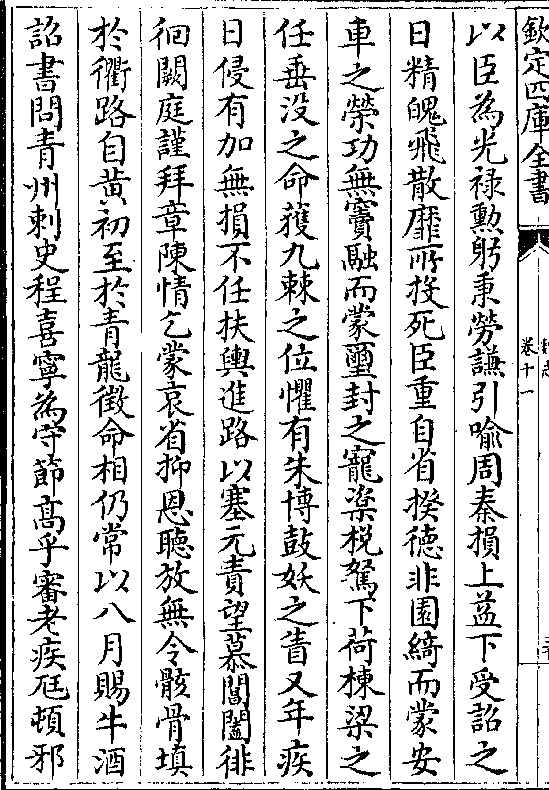 欽定四庫全書
魏志
卷十一
以臣為光禄勲躬秉勞謙引喻周秦損上益下受詔之
日精魄飛散靡所投死臣重自省揆德非園綺而蒙安
車之榮功無竇融而蒙璽封之寵楶梲駑下荷棟梁之
任垂没之命獲九棘之位懼有朱博鼓妖之眚又年疾
日侵有加無損不任扶輿進路以塞元責望慕閶闔徘
徊闕庭謹拜章陳情乞蒙哀省抑恩聽放無令骸骨填
於衢路自黄初至於青龍徵命相仍常以八月賜牛酒
詔書問青州刺史程喜寧為守節髙乎審老疾尫頓邪